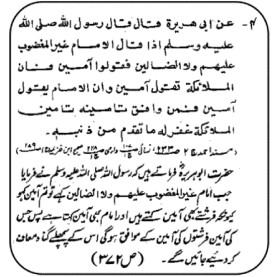 ۴- عن ابی هریرة قال قال رسول الله صلی الله
علیه وسلم اذا قال الامام غیر المغضوب
علیهم ولا الضالین فقولوا آمین فان
الملائكة تقول آمین وان الامام یقول
آمین فمن وافق تامینه تامین
الملائكة غفر له ما تقدم من ذنبه۔
(مسند احمد ج ۲ ص ۲۳۳، نسائی
حضرت ابوہریرہؓ فرماتے ہیں کہ رسول اللہ صلی اللہ علیہ وسلم نے فرمایا
جب امام غیر المغضوب علیہم ولا الضالین کہے تو تم آمین کہو
کیونکہ فرشتے بھی آمین کہتے ہیں اور امام بھی آمین کہتا ہے پس جس
کی آمین فرشتوں کی آمین کے موافق ہوگی اس کے پچھلے گناہ معاف
کر دیئے جائیں گے۔ (ص ۳۷۲)